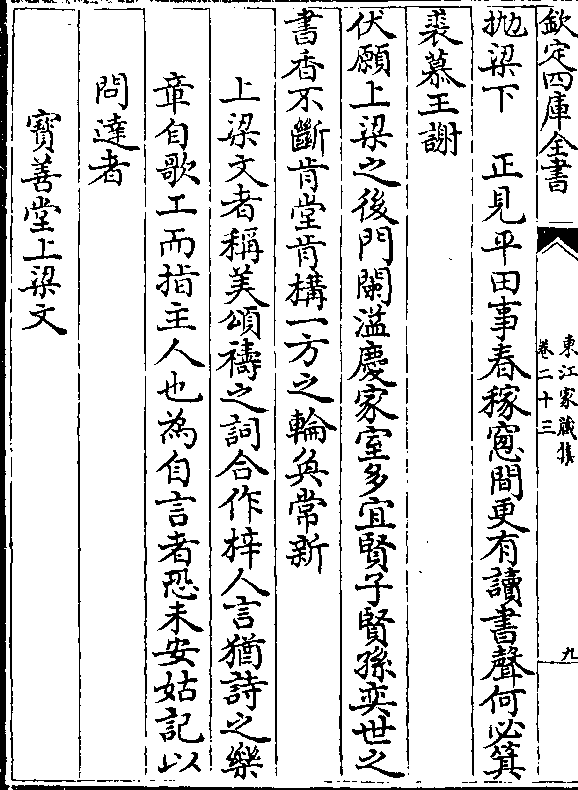 欽定四庫全書
東江家藏集
卷二十三
九
拋梁下　正見平田事春稼窓間更有讀書聲何必箕
裘慕王謝
伏願上梁之後門闌溢慶家室多宜賢子賢孫奕世之
書香不斷肯堂肯構一方之輪奐常新
上梁文者稱美頌禱之詞合作梓人言猶詩之樂
章自歌工而指主人也為自言者恐未安姑記以
問達者
寶善堂上梁文